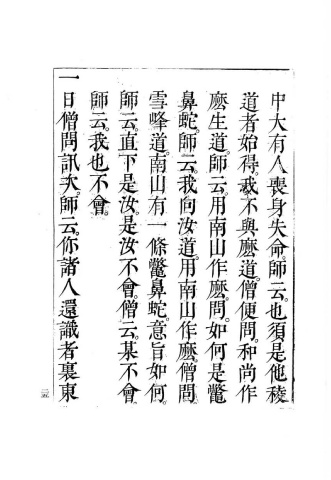 中大有人喪身失命。師云。也須是他稜
道者始得。我不與麽道。僧便問。和尚作
麽生道。師云。用南山作麽。問。如何是鼈
鼻蛇。師云。我向汝道。用南山作麽。僧問
雪峰道。南山有一條鼈鼻蛇。意旨如何。
師云。直下是汝。是汝不會。僧云。某不會。
師云。我也不會。
一日僧問訊次。師云。你諸人還識者裏東